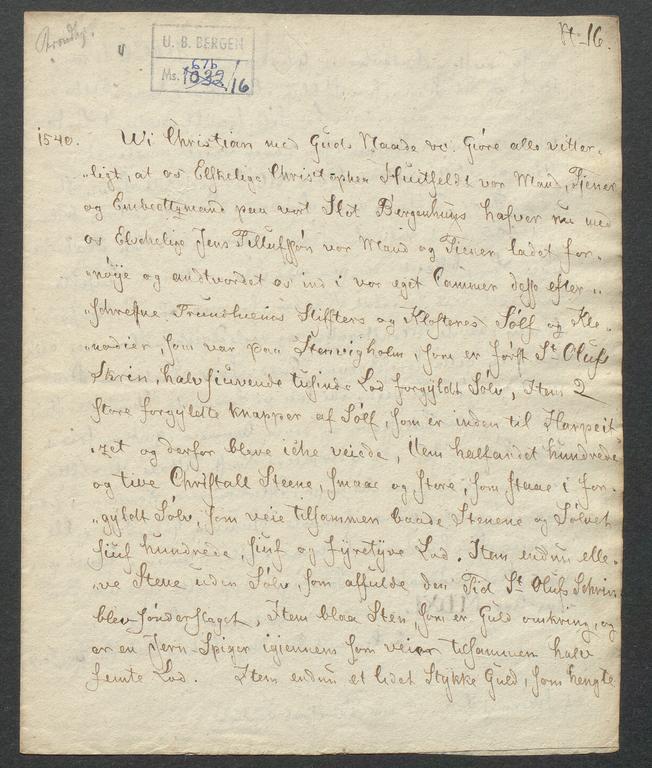 Trondhj.
N. 16.
U. B. BERGEN
676
Ms. 1032/16
1540. Wi Christian med Guds Naade etc. Giöre alle vitter-
ligt, at os Elskelige Christopher Huitfeldt vor Mand, Tiener
og Embedtzmand paa vort Slot Bergenhuus hafver nu med
os Elskelige Jens Tilluffsön vor Mand og Tiener ladet for-
nöije og andtvordet os ind i vor eget Cammer desse efter-
schrefne Trundhiems Stiffters og Klosteres Sölf og Kle-
nodier, som var paa Stenvigholm, som er först St Olufs
Skrin, halv siuvende tusinde Lod forgyldt Sölv, Item 2
store forgyldte knapper af Sölf, som er inden til
og derfor bleve icke veiede, Item halfandet hundrede
og tive Christall Steene, smaae og store, som staae i for-
gyldt Sölv, som veie tilsammen baade Stenene og Sölvet
siuf hundrede, siuf og fyretyve Lod. Item endnu elle-
ve Stene uden Sölv, som affulde den Tid St Olufs Schrin
blev sönderslaget, Item blaa Sten, som er Guld omkring, og
er en Jern Spiger igiennem som veier tilsammen halv
femte Lod. Item endnu et lidet Stykke Guld, som hengte